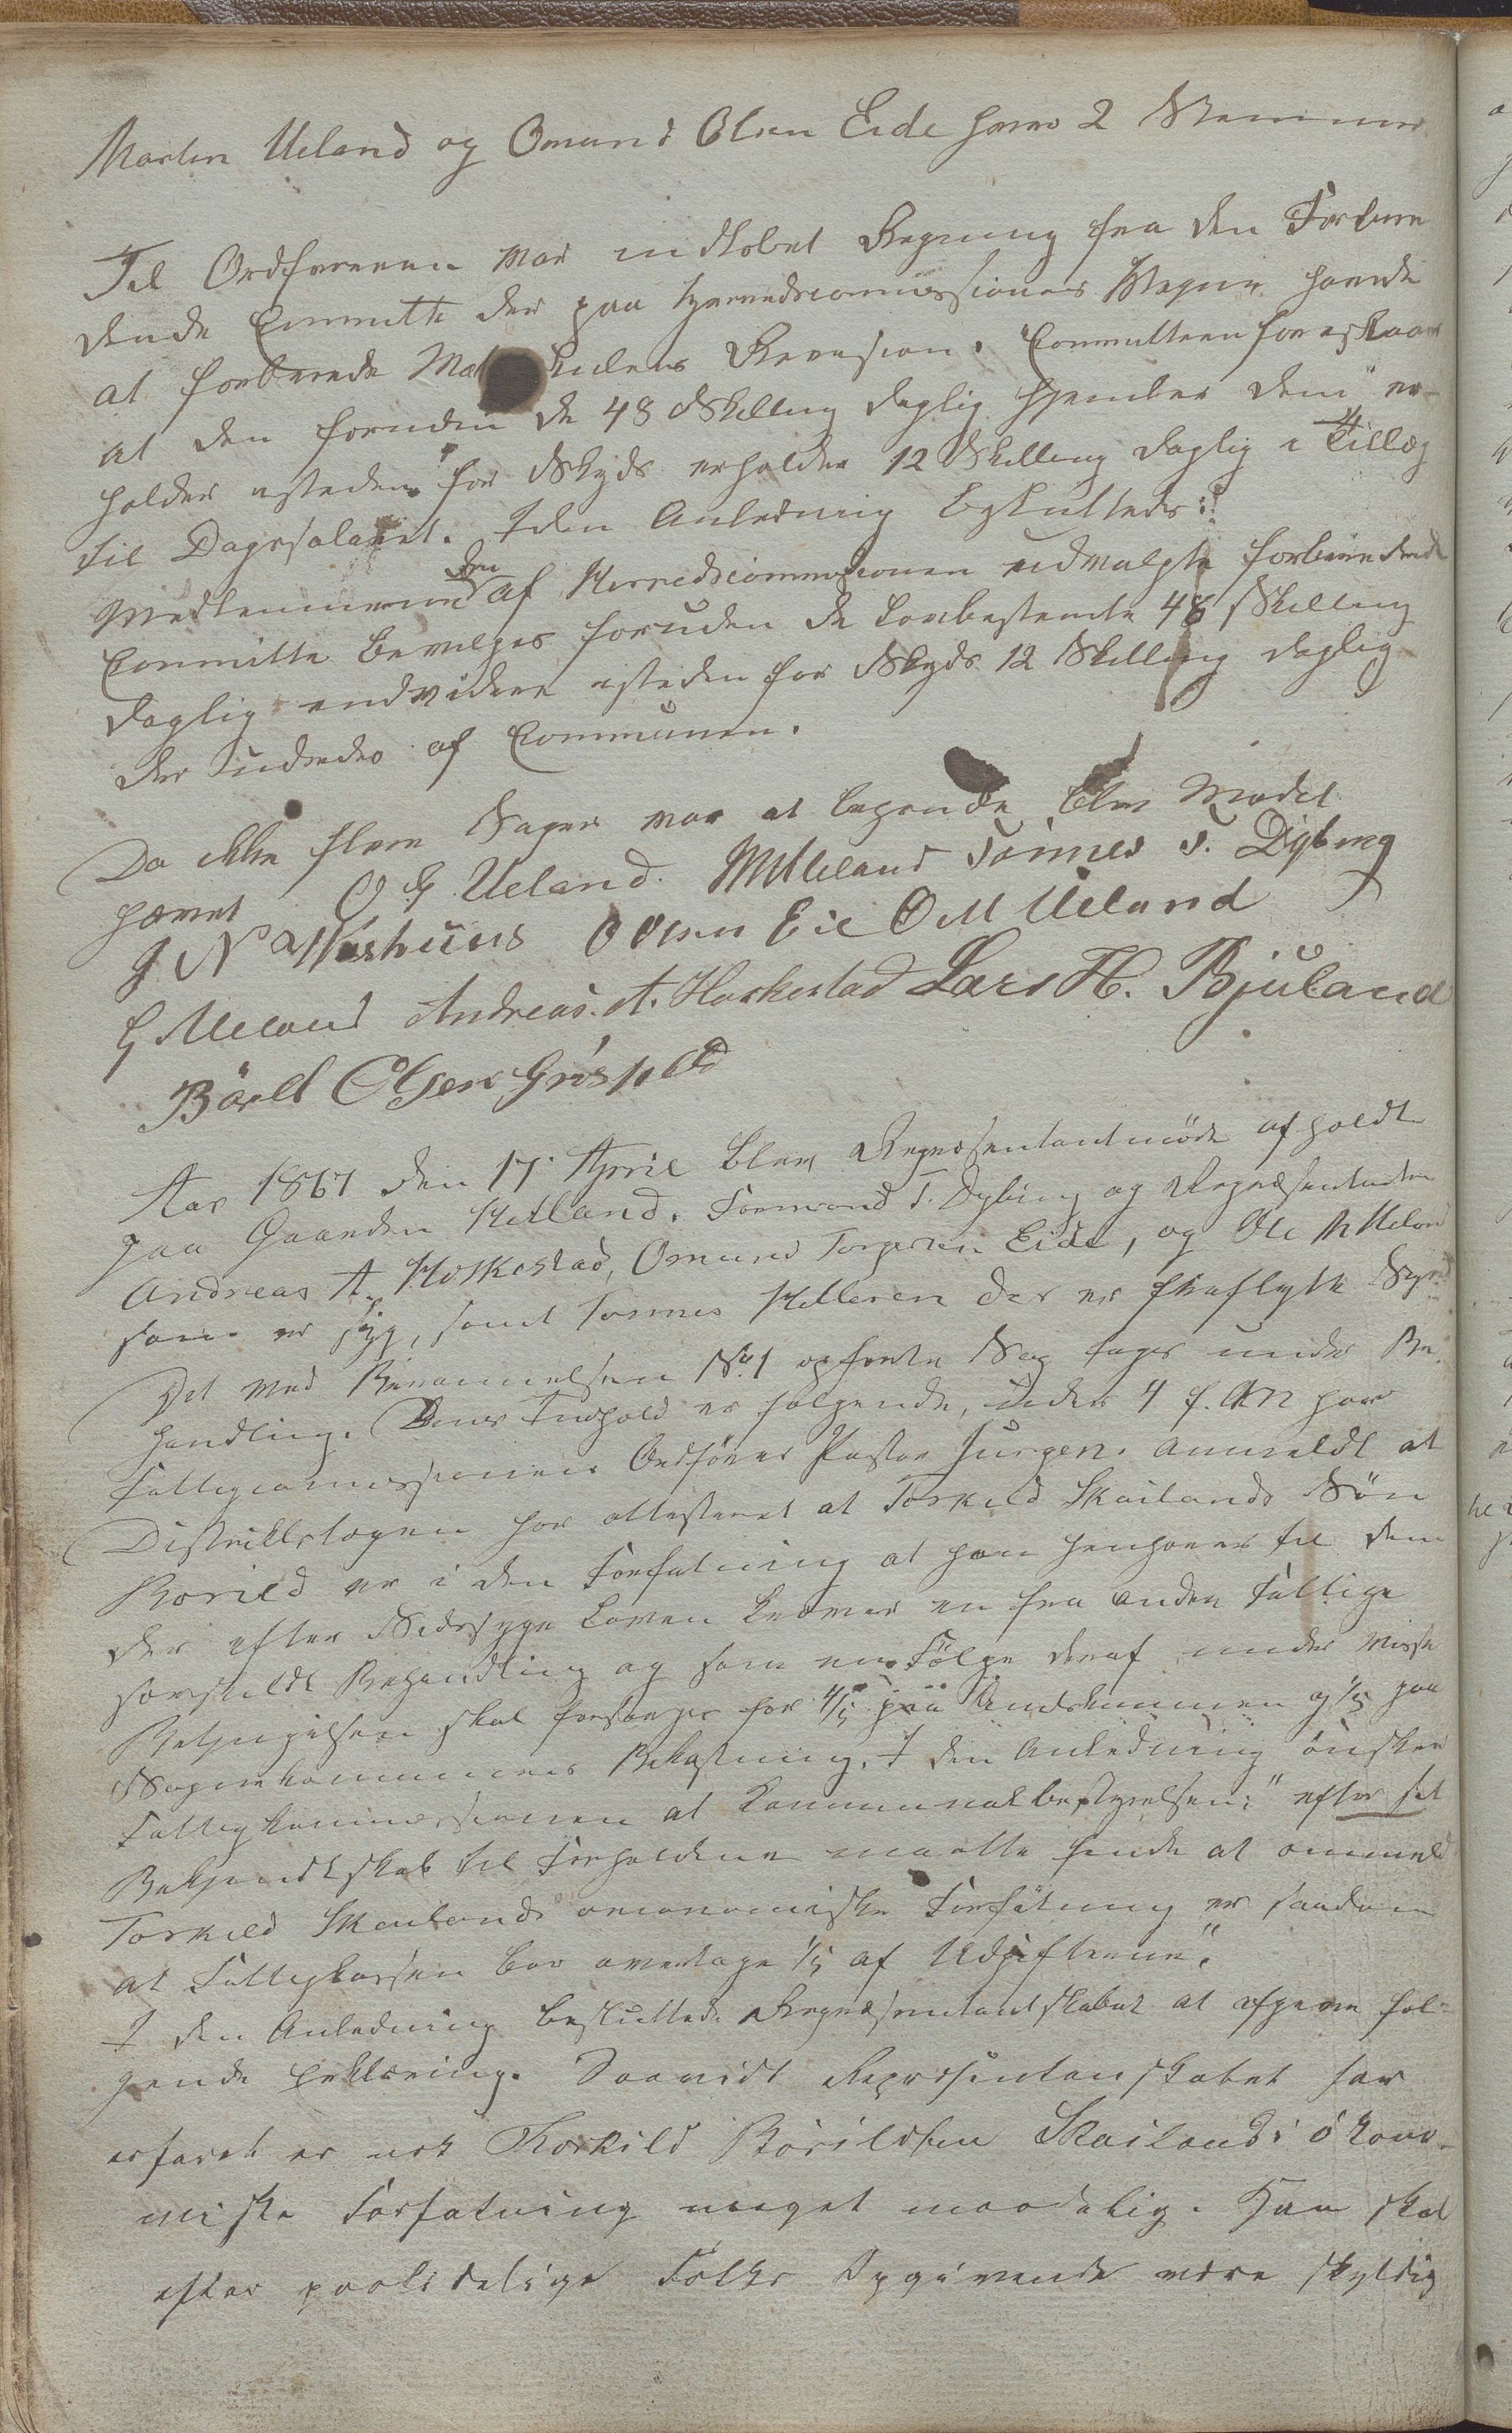 Morten Ueland og Omund Olsen Eide hver 2 Stemmer
Til Ordføreren var indløbet Regning fra den Forbere
dende Committe der paa Herredscommissionens Vegne havde
at forberede Mat kulens Revision. Committeen foreslaar
at den foruden de 48 Skilling daglig hjemler dem er-
holder isteden for Skyds erholder 12 Skilling daglig i Tillæg
til Dagssalairet. I den Anledning besluttedes:
Medlemmerne den af Herredscommissionen udvalgte forberedende
Committe bevilges foruden de lovbestemte 48 Skilling
daglig endvidere isteden for Skyds 12 Skilling daglig
der udredes af Communen.
Da ikke flere Sager var at behandle blev Mødet
hævet O G. Ueland. M Ueland Tönnes T. Dybing
J N Aarhuus O Olsen Eie O M Ueland
G Ueland Andreas. A. Haskestad Lars H. Bjuland
Bärld Olsen
Aar 1867 den 17 April blev Repræsentantmøde afholdt
paa Gaarden Hetland. Formand T. Dybing og Repræsentanten
Andreas A. Hoskestad, Omund Torgersen Eide, og Ole M Ueland
som er syg, samt Tønnes Helleren der er fraflytte Sogned
Det med Berammelsen No 1 opførte Sag toges under Be
handling. Dens Indhold er følgende, under 4 f. M har
Fattigcommissionens Ordfører Pastor Jürgen. anmeldt at
Distriktslægen har attesteret at Torkild Skailands Søn
Borild er i den Forfatning at han henhører til dem
der efter Sindssyge Loven kræver en fra andre Fattige
forskjeldt Behandling og som en Følge deraf under visse
Betingelser skal forsørges for 4/5 paa Amtskommunen og 1/5 paa
Sognekommunens Bekostning. I den Anledning ønsker
Fattigkommissionen at Kommunalbestyrelsen: "efter sit
Bekjendtskab til Forholdene maatte finde at anmeldt
Torkild Skailands oeconomiske Forfatning er saadan
at Fattigkassen bør overtage 1/5 af Udgifterne".
I den Anledning besluttede Repræsentantskabet at afgive føl-
gende Erklæring. Saavidt Repræsentanskabet har
erfaret er nok Thorkild Börildsen Skailands ökono-
miske Forfatning meget maadelig. Han skal
efter paalidelige Folks Opgivende være skyldig